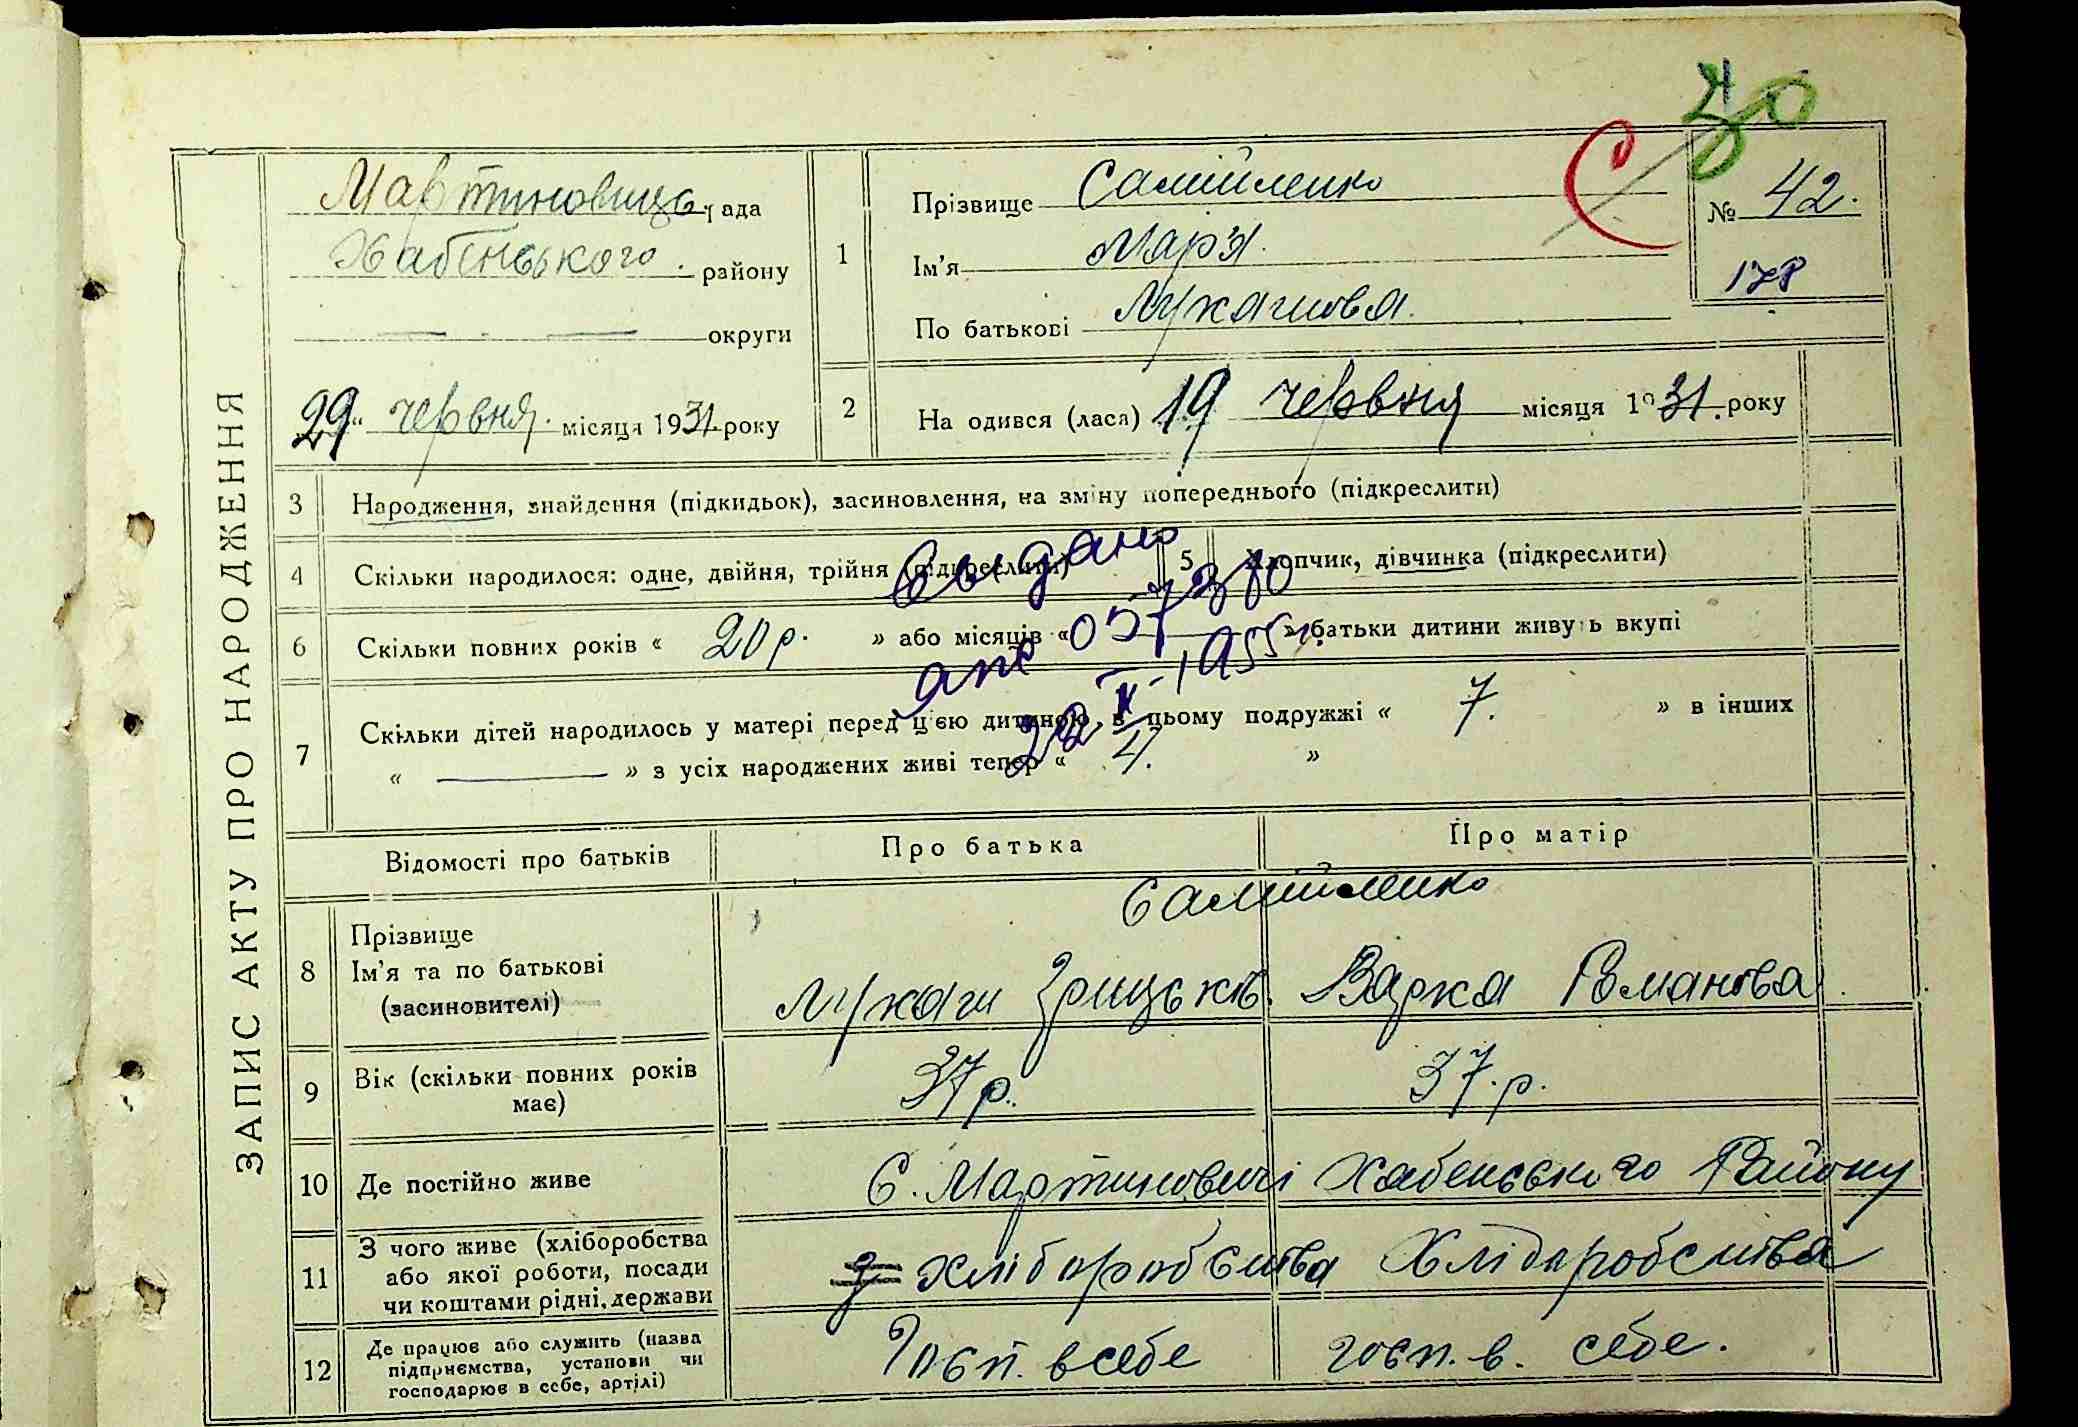 70
ЗАПИС АКТУ ПРО НАРОДЖЕННЯ
Мартиновиць. рада
Хабенського. району
округи
"29" червня. місяця 1931. року
1
Прізвище Самійленко
Ім'я Мар'я.
По батькові Лукашова.
С
№ 42.
178
2
На одився (лася) 19 червня місяця 1931. року
3 Народження, знайдення (підкидьок), засиновлення, на зміну попереднього (підкреслити)
4 Скільки народилося: одне, двійня, трійня (підкреслити)
5 Хлопчик, дівчинка (підкреслити)
6 Скільки повних років « 20 р. » або місяців « » батьки дитини живуть вкупі
7 Скільки дітей народилось у матері перед цією дитиною в цьому подружжі « 7. » в інших
« — » з усіх народжених живі тепер « 4. »
Выдано
1955 г.
Відомості про батьків Про батька Про матір
8 Прізвище Самійленко
Ім'я та по батькові
(засиновителі)
Лукаш Грицьків. Варка Романова
9 Вік (скільки повних років має) 37 р. 37. р.
10 Де постійно живе С. Мартиновичі Хабенського Району
11 З чого живе (хліборобства
або якої роботи, посади
чи коштами рідні, держави
Хліборобства Хліборобства
12 Де працює або служить (назва
підприємства, установи чи
господарює в себе, артілі)
Госп. в себе госп. в. себе.